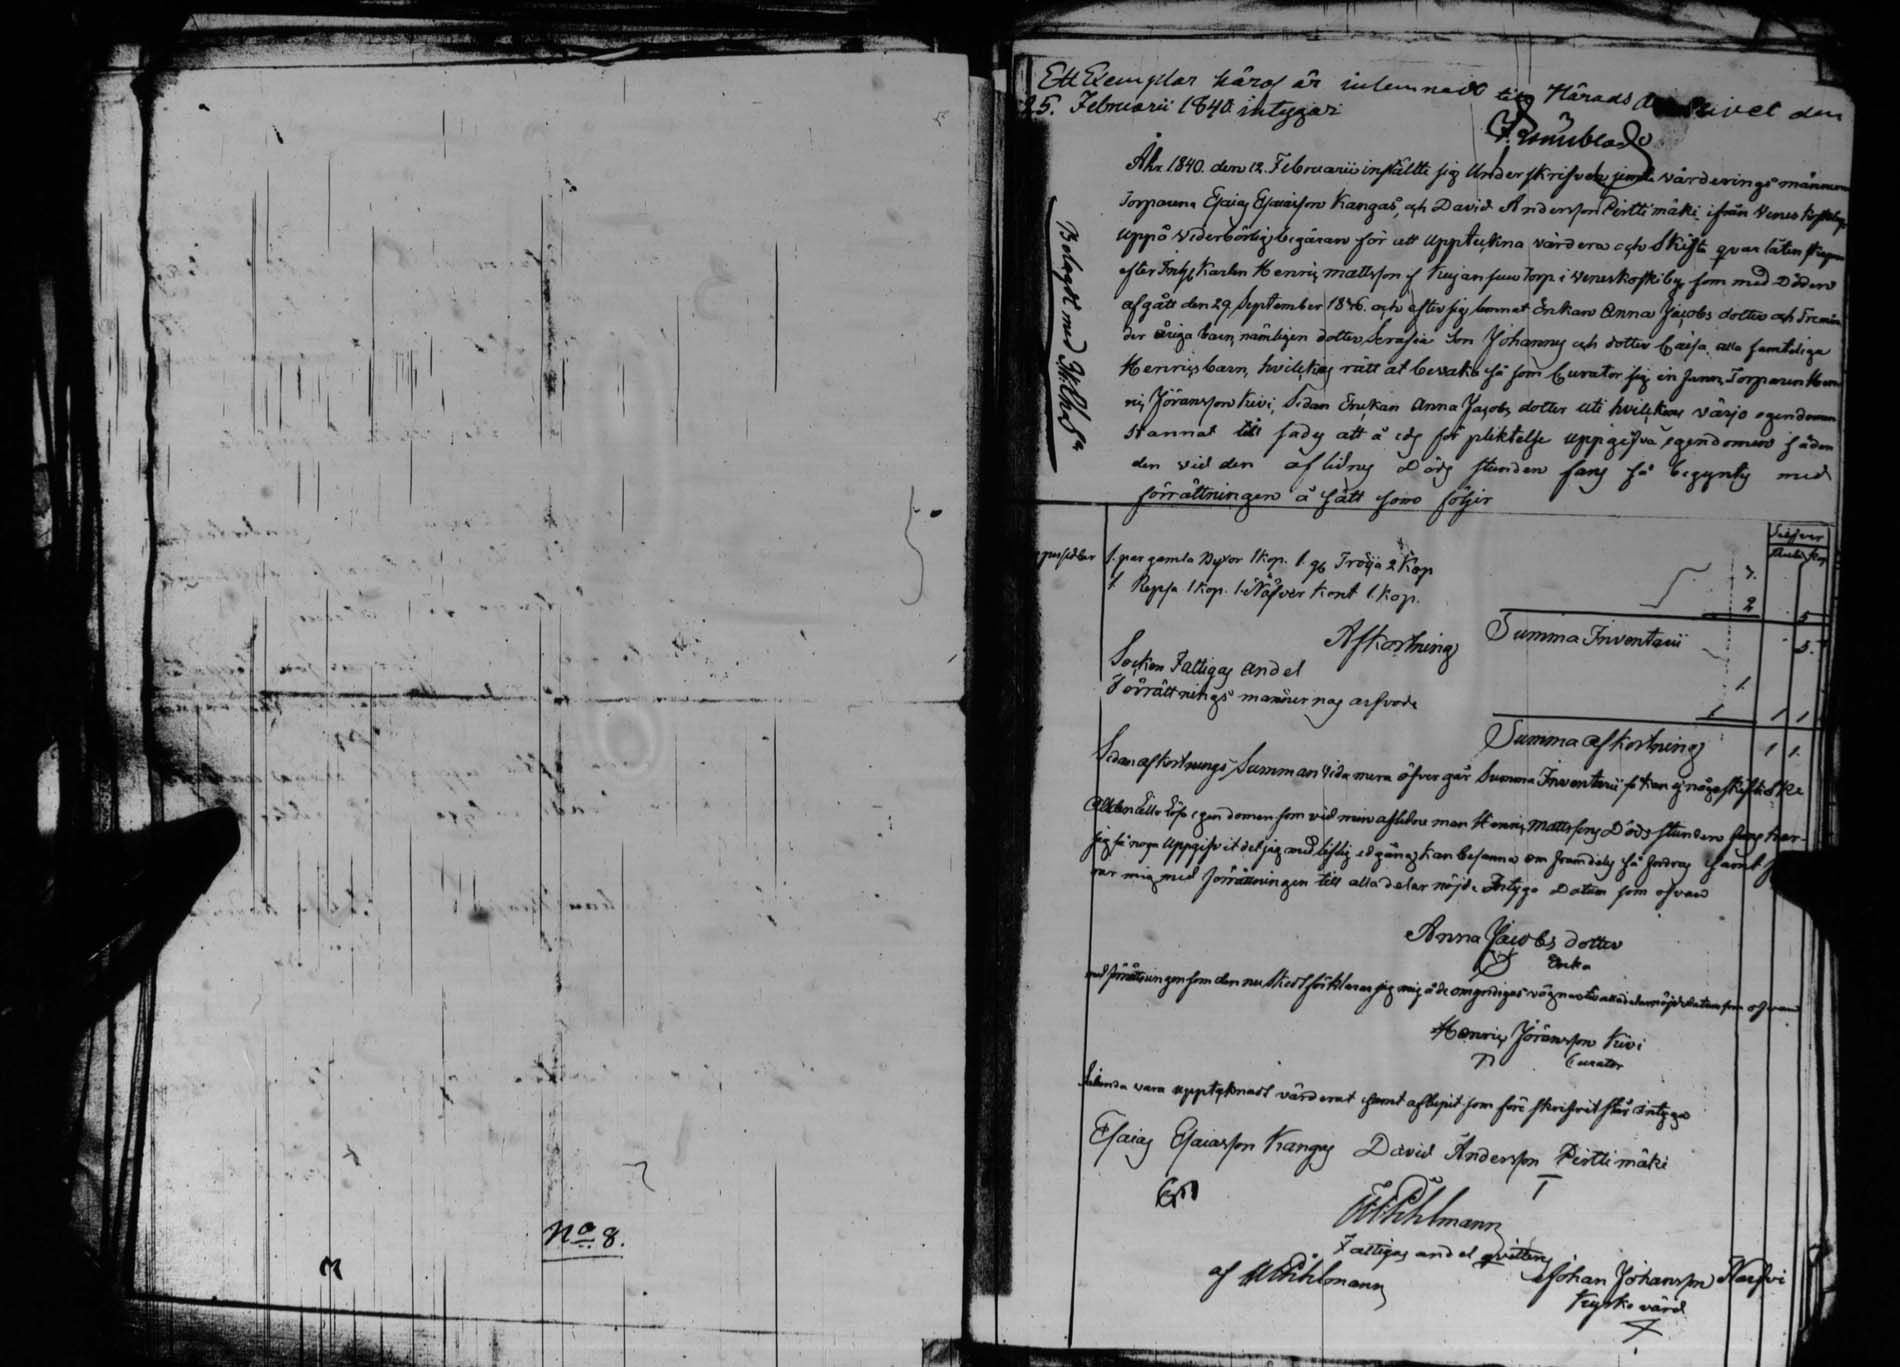 No 8.
Ett Exemplar häraf är inlemnadt till Härads Archivet den
25. Februarii 1840. intygar
Belagdt med St. Chs.
Åhr 1840. den 12. Februarii instälte sig Underskrifven jemte värderings männerne
Torparena Esaias Esaiasson Kangas, och David Andersson Perttimäki ifrån Veneskoski by
uppå vederbörligs begäran för att uppteckna värdera och skifta qvarlåtenskapen
efter Inhyses Karlen Henrics Mattsson i Kujansuu Torp i Veneskoski by som med Döden
afgått den 29. September 1836. och efter sig lemnat Enkan Anna Jacobs dotter och Tre min
der åriga barn, nämligen dotter Serafia Son Johannes och dotter Caisa, alla samteliga
Henrics barn, hvilckas rätt at bevaka så som Curator sig in fann, Torparen Hen
ric Jöransson Kivi, Sedan Enckan Anna Jacobs dotter uti hvilckens värjo egendomen
stannat till sades att å eds för pliktelse uppgifva egendomen sådan
den vid den aflidnes Döds stunden fans så begyntes med
förrättningen å sätt som följer
Silfver
Rub. Kop
1. par gamla Byxor 1 Kop. 1. g. Tröija 2 Kop 3.
1 Repsa 1 Kop. 1. Näfver Kont 1. Kop. 2 5
Summa Inventarii 5.
Afkortning
Socken Fattigas andel 1.
Förrättnings männernas arfvode 1 1 1
Summa afkortning 1 1.
Sedan afkortnings Summan vida mera öfver går Summa Inventarii så kan ej något skifte ske
Att den Lilla Lösegendomen som vid min aflidne man Henrics Mattssons Döds stunden fans har
jag så noga Uppgifvit det jag med liflig edgång kan besanna om framdeles så fordras samt
rar mig med förrättningen till alla delar nöjd Intyga Datum som ofvan
Anna Jacobs dotter
Enka
med förrättningen som den nu skedt förklarar jag mig å de omyndigas vägnar till alla delar nöjd datum som ofvan
Henric Jöransson Kivi
Curator
Sålunda vara upptecknadt värderat samt aflupit som före skrifvit står intyga
Esaias Esaiasson Kangas David Andersson Perttimäki
Pihlmann
Fattigas andel qvitteras
af Pihlmann Johan Johansson Harfvi
Kyrko värd